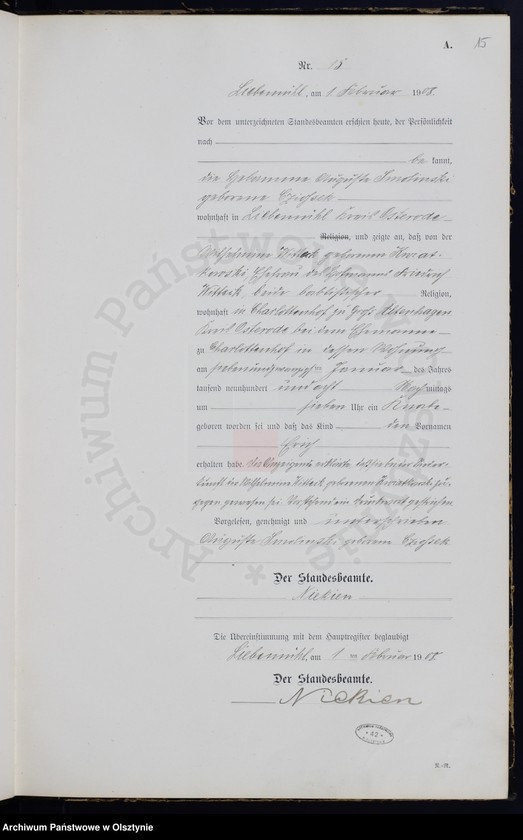 A. 15
Nr. 15
Liebemühl, am 1 Februar 1908.
Vor dem unterzeichneten Standesbeamten erschien heute, der Persönlichkeit
nach
be kannt,
die Hebamme Auguste Smolinski
geborene
wohnhaft in Liebemühl Kreis Osterode
Religion, und zeigte an, daß von der
Wilhelmine Witteck geborenen Kwiat-
kowski, Ehefrau des Friedrich
Witteck, beide baptistischer Religion,
wohnhaft in Charlottenhof zu Groß Altenhagen
Kreis Osterode bei dem Ehemanne
zu Charlottenhof in dessen Wohnung
am siebenundzwanzigsten Januar des Jahres
tausend neunhundert und acht Nachmittags
um sieben Uhr ein Knabe
geboren worden sei und daß das Kind den Vornamen
Erich
erhalten habe. Die Anzeigende erklärte, daß sie bei der Nieder-
kunft der Wilhelmine Witteck geborenen Kwiatkowski zu-
gegen gewesen sei. Vorstehend ein Druckwort gestrichen
Vorgelesen, genehmigt und unterschrieben
Auguste Smolinski geborene
Der Standesbeamte.
Nickien
Die Übereinstimmung mit dem Hauptregister beglaubigt
Liebemühl, am 1 ten Februar 1908.
Der Standesbeamte.
Nickien
Archiwum Państwowe w Olsztynie
Archiwum Państwowe w Olsztynie